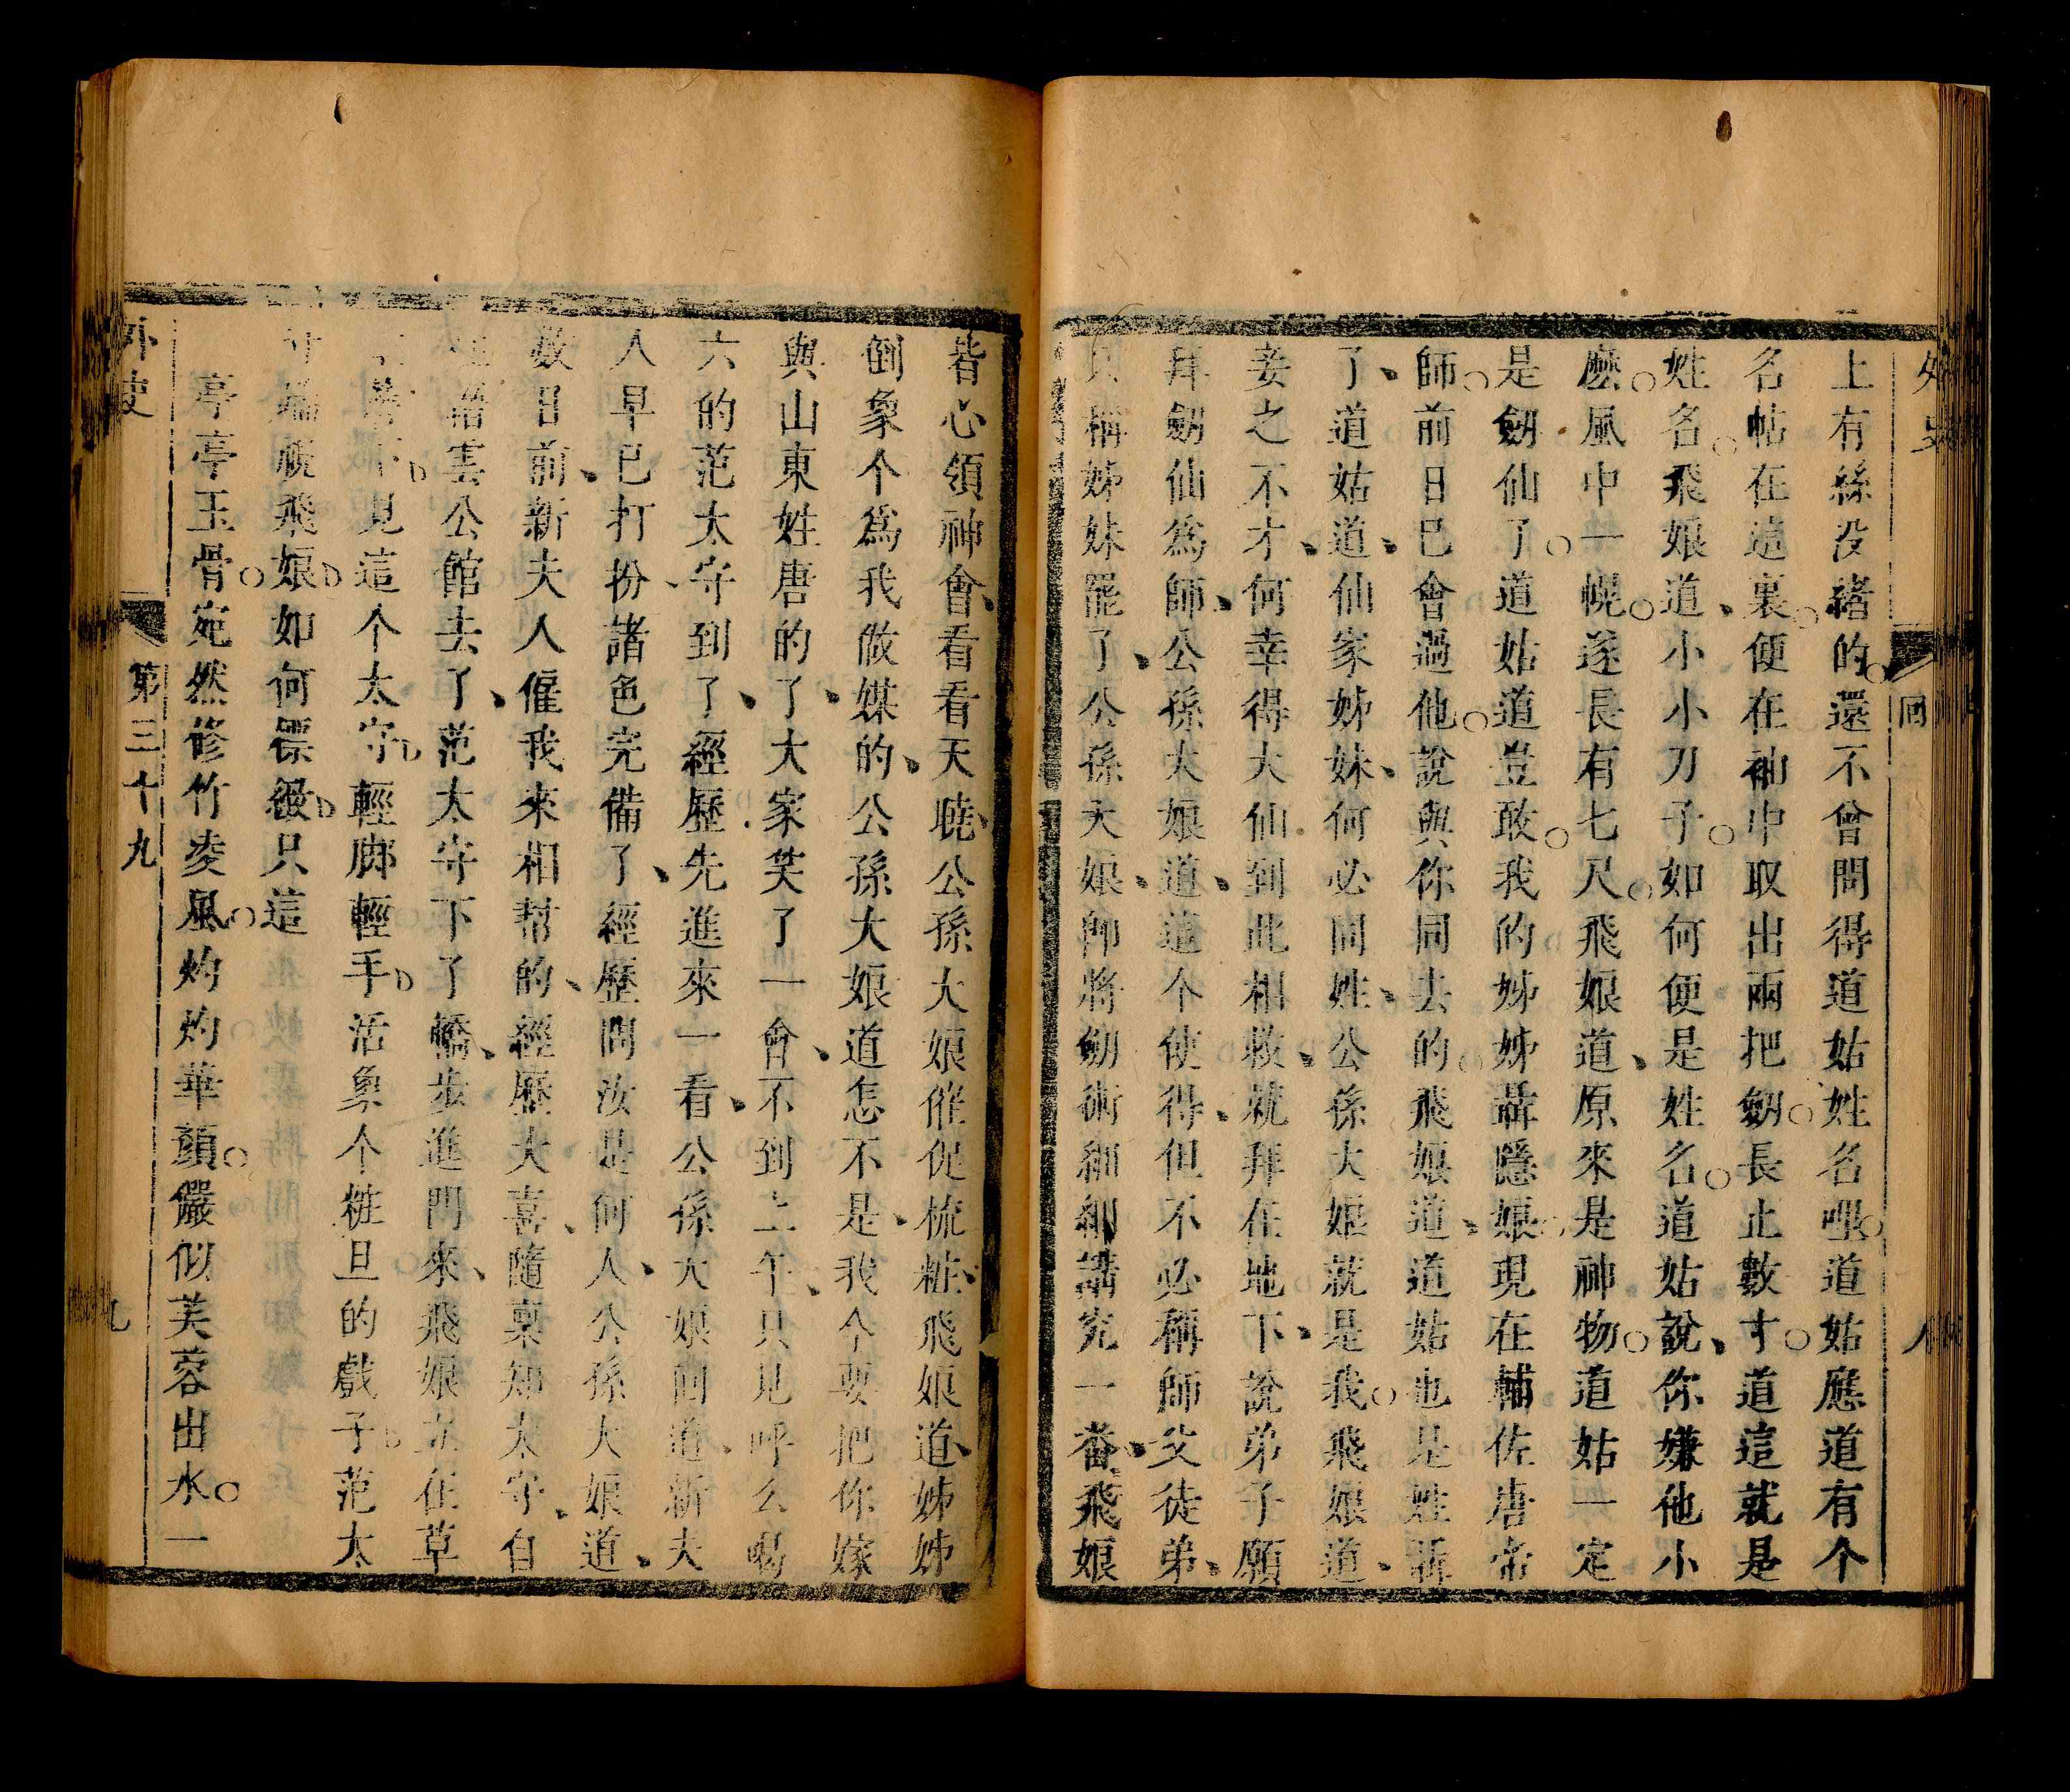 外史
回
八
上有絲没緒的還不曾問得道姑姓名哩道姑應道有个
名帖在這裏便在袖中取出兩把劒長止數寸道這就是
姓名飛娘道小小刀子如何便是姓名道姑說你嫌他小
麽風中一幌遂長有七尺飛娘道原來是神物道姑一定
是劒仙了道姑道豈敢我的姊姊聶隱娘現在輔佐唐帝
師前日已會過他說與你同去的飛娘道道姑也是姓聶
了道姑道仙家姊妹何必同姓公孫大娘就是我飛娘道
妾之不才何幸得大仙到此相救就拜在地下說弟子願
拜劒仙爲師公孫大娘道這个使得但不必稱師父徒弟
只稱姊妹罷了公孫大娘卽將劒術細細講究一番飛娘
皆心領神會看看天曉公孫大娘催促梳粧飛娘道姊姊
倒象个爲我做媒的公孫大娘道怎不是我今要把你嫁
與山東姓唐的了大家笑了一會不到上午只見呼么喝
六的范太守到了經歷先進來一看公孫大娘回道新夫
人早已打扮諸色完備了經歷問汝是何人公孫大娘道
數日前新夫人僱我來相幫的經歷大喜隨稟知太守自
公館去了范太守下了轎步進門來飛娘立在草
下見這个太守輕脚輕手活象个粧旦的戲子范太
飛娘如何摽緻只這
亭亭玉骨宛然修竹凌風灼灼華顏儼似芙蓉出水一
外史
第三十九
九